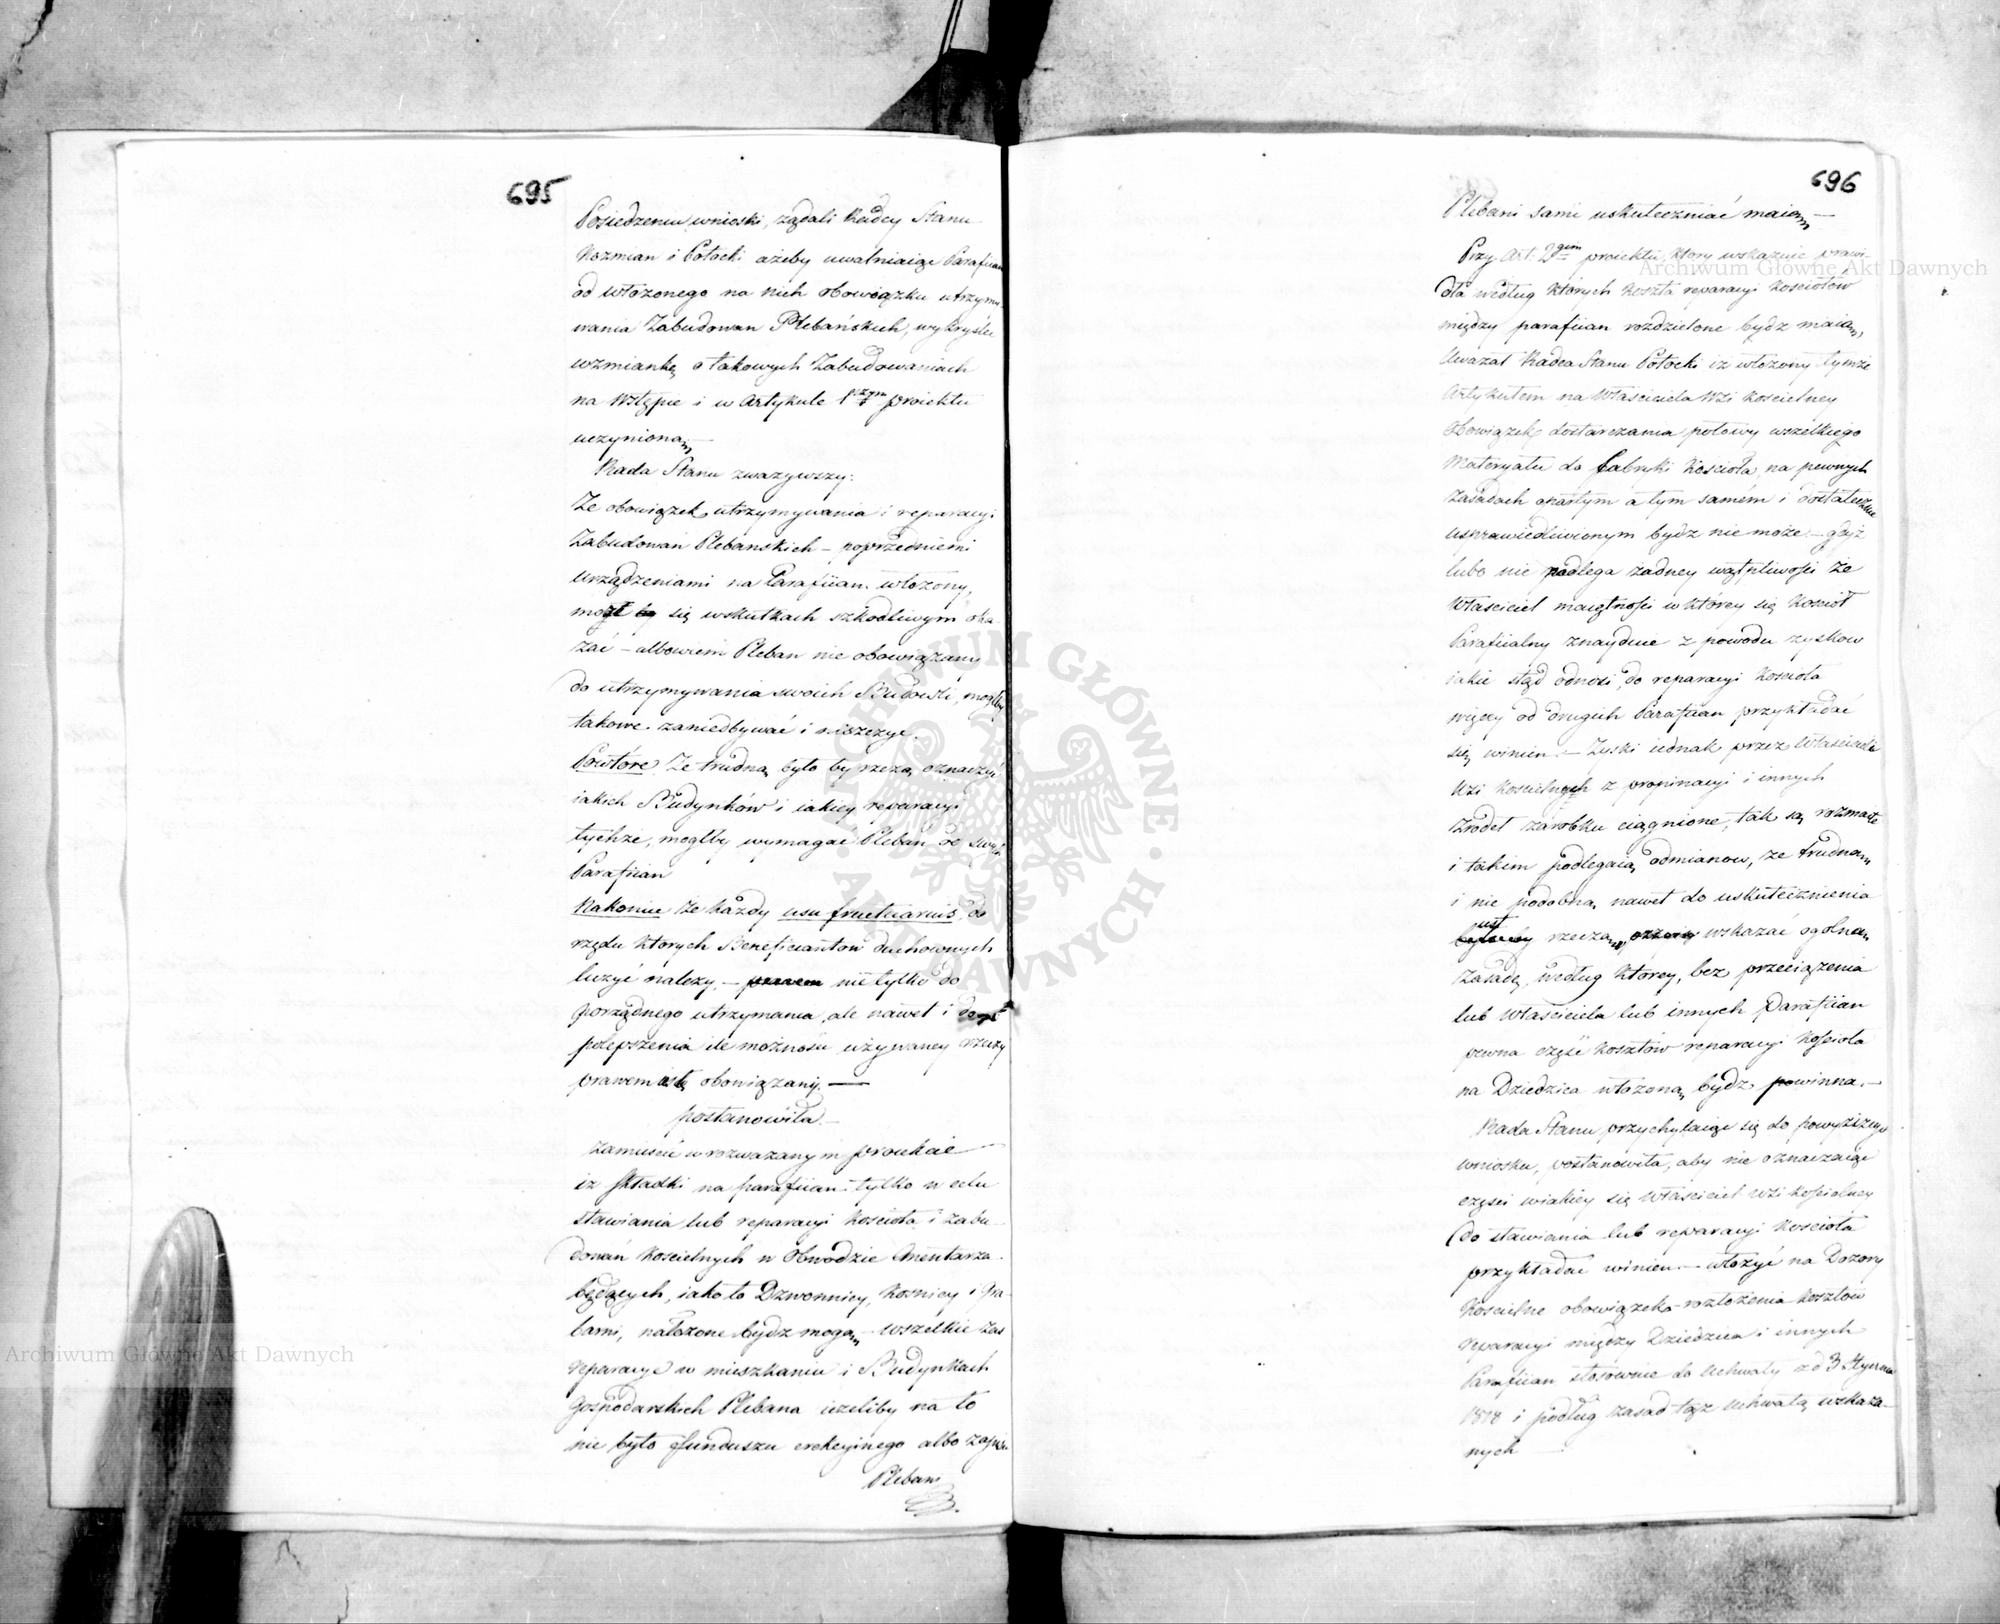 695
Posiedzeniu wnioski, żądali Radcy Stanu
Kozmian i Potocki ażeby uwalniaiąc Parafiian
od włożonego na nich obowiązku utrzymy
wania Zabudowan Plebańskich, wykryślić
wzmiankę o takowych Zabudowaniach
na Wstępie i w Artykule 1szym proiektu
uczynioną
Rada Stanu zważywszy:
Ze obowiązek utrzymywania i reparacyi
Zabudowań Plebanskich – poprzedniemi
urządzeniami na Parafiian włożony,
mógł by się w skutkach szkodliwym oka
zać – albowiem Pleban nie obowiązany
do utrzymywania swoich Budowli, mogłby
takowe zaniedbywać i niszczyć.
Powtóre. Ze trudną było by rzeczą oznaczyć
iakich Budynków i iakiey reparacyi
tychże, mogłby wymagać Pleban od swych
Parafiian
Nakoniec że każdy usu fructuarius, do
rzędu ktorych Beneficiantow duchownych
liczyć należy, – prawem nietylko do
porządnego utrzymania, ale nawet i do
polepszenia ile możności używaney rzeczy
prawem iest obowiązany. —
postanowiła. –
Zamieścić w rozważanym proiekcie
iż składki na parafiian tylko w celu
stawiania lub reparacyi Kościoła i Zabu
dowań Koscielnych w Obwodzie Cmentarza
będących, iako to Dzwonnicy, Kosnicy i Gra-
barni, nałożone bydz mogą, – wszelkie zas
reparacye w mieszkaniu i Budynkach
Gospodarskich Plebana ieżeliby na to
nie było funduszu erekcyinego albo zapisu
Plebani
696
Plebani sami uskuteczniać maią —
Przy Art. 2gim proiektu, ktory wskazuie prawi-
dła według ktorych koszta reparacyi kosciołów
między parafiian rozdzielone bydz maią,
Uważał Radca Stanu Potocki iz włożony tymże
Artykułem na Właściciela Wsi Koscielney
Obowiązek dostarczania połowy wszelkiego
Materyału do fabryki Kościoła na pewnych
Zasadach opartym a tym samém i dostatecznie
usprawiedliwionym bydz nie może – gdyż
lubo nie podlega żadney wątpliwości że
Właściciel maiętności w którey się Kosciół
Parafiialny znayduie z powodu zyskow
iakie stąd odnosi, do reparacyi Kościoła
więcey od drugich Parafiian przykładać
się winien. – Zyski iednak przez Właściciela
Wsi Koscielnych z propinacyi i innych
Źrodeł zarobku ciągnione, tak są rozmaite
i takim podlegaią odmianom, że trudną
i nie podobną nawet do uskutecznienia
iest
byłoby rzeczą, wskazać ogolną
Zasadę, według ktorey, bez przeciążenia
lub Właściciela lub innych Parafiian
pewna część kosztów reparacyi Kościoła
na Dziedzica włożoną bydz powinna. –
Rada Stanu przychylaiąc się do powyższego
wniosku, postanowiła, aby nie oznaczaiąc
części w iakiey się Właściciel wsi Kościelney
do stawiania lub reparacyi Kościoła
przykładać winien – włożyć na Dozory
Kościelne obowiązek rozłożenia kosztów
reparacyi między Dziedzica i innych
Parafiian stosownie do Uchwały z d 3 Stycznia
1818 i podług zasad tąż uchwałą wskaza-
nych —
Archiwum Główne Akt Dawnych
Archiwum Główne Akt Dawnych
ARCHIWUM GŁÓWNE AKT DAWNYCH